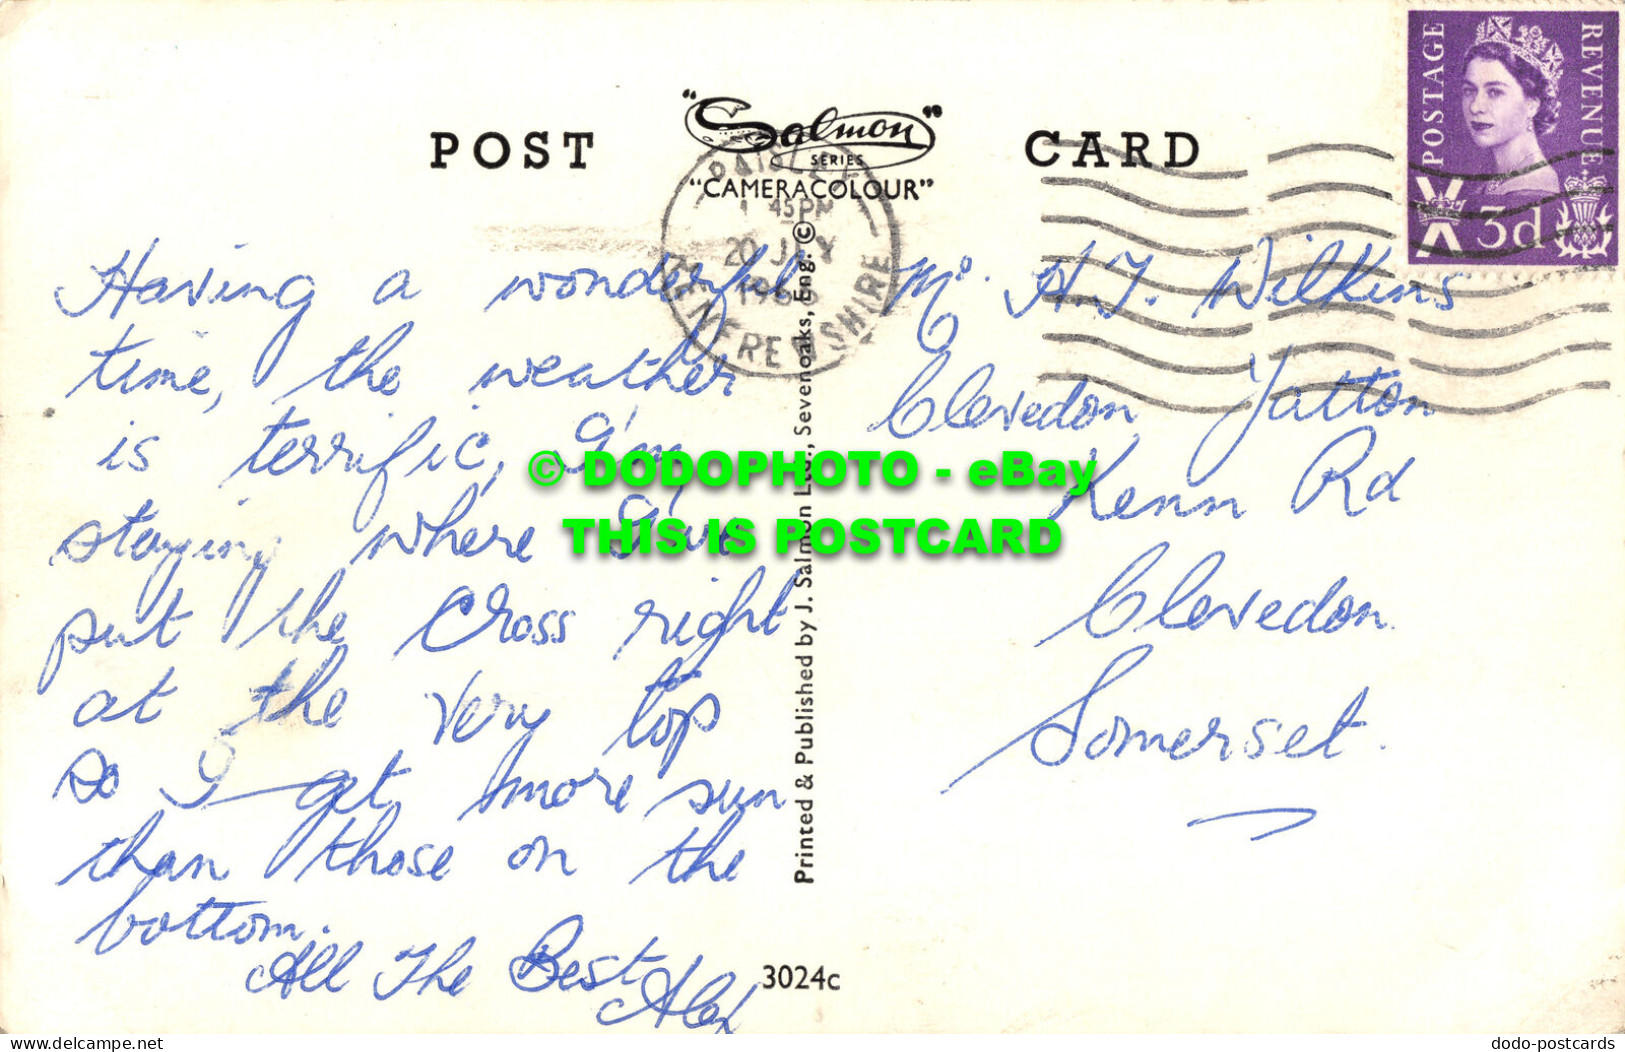 POST "Salmon" CARD
SERIES
"CAMERACOLOUR"
POSTAGE
REVENUE
3d
PAISLEY
1 45PM
20 JLY
RENFREWSHIRE
Having a wonderful
time, the weather
is terrific, I'm
staying where I've
put the cross right
at the very top
so I get more sun
than those on the
bottom.
All The Best
Alex
Printed & Published by J. Salmon Ltd., Sevenoaks, Eng. ©
3024c
Mr. H.J. Wilkins
Clevedon Yatton
Kenn Rd
Clevedon
Somerset.
© DODOPHOTO - eBay
THIS IS POSTCARD
delcampe.net
dodo-postcards